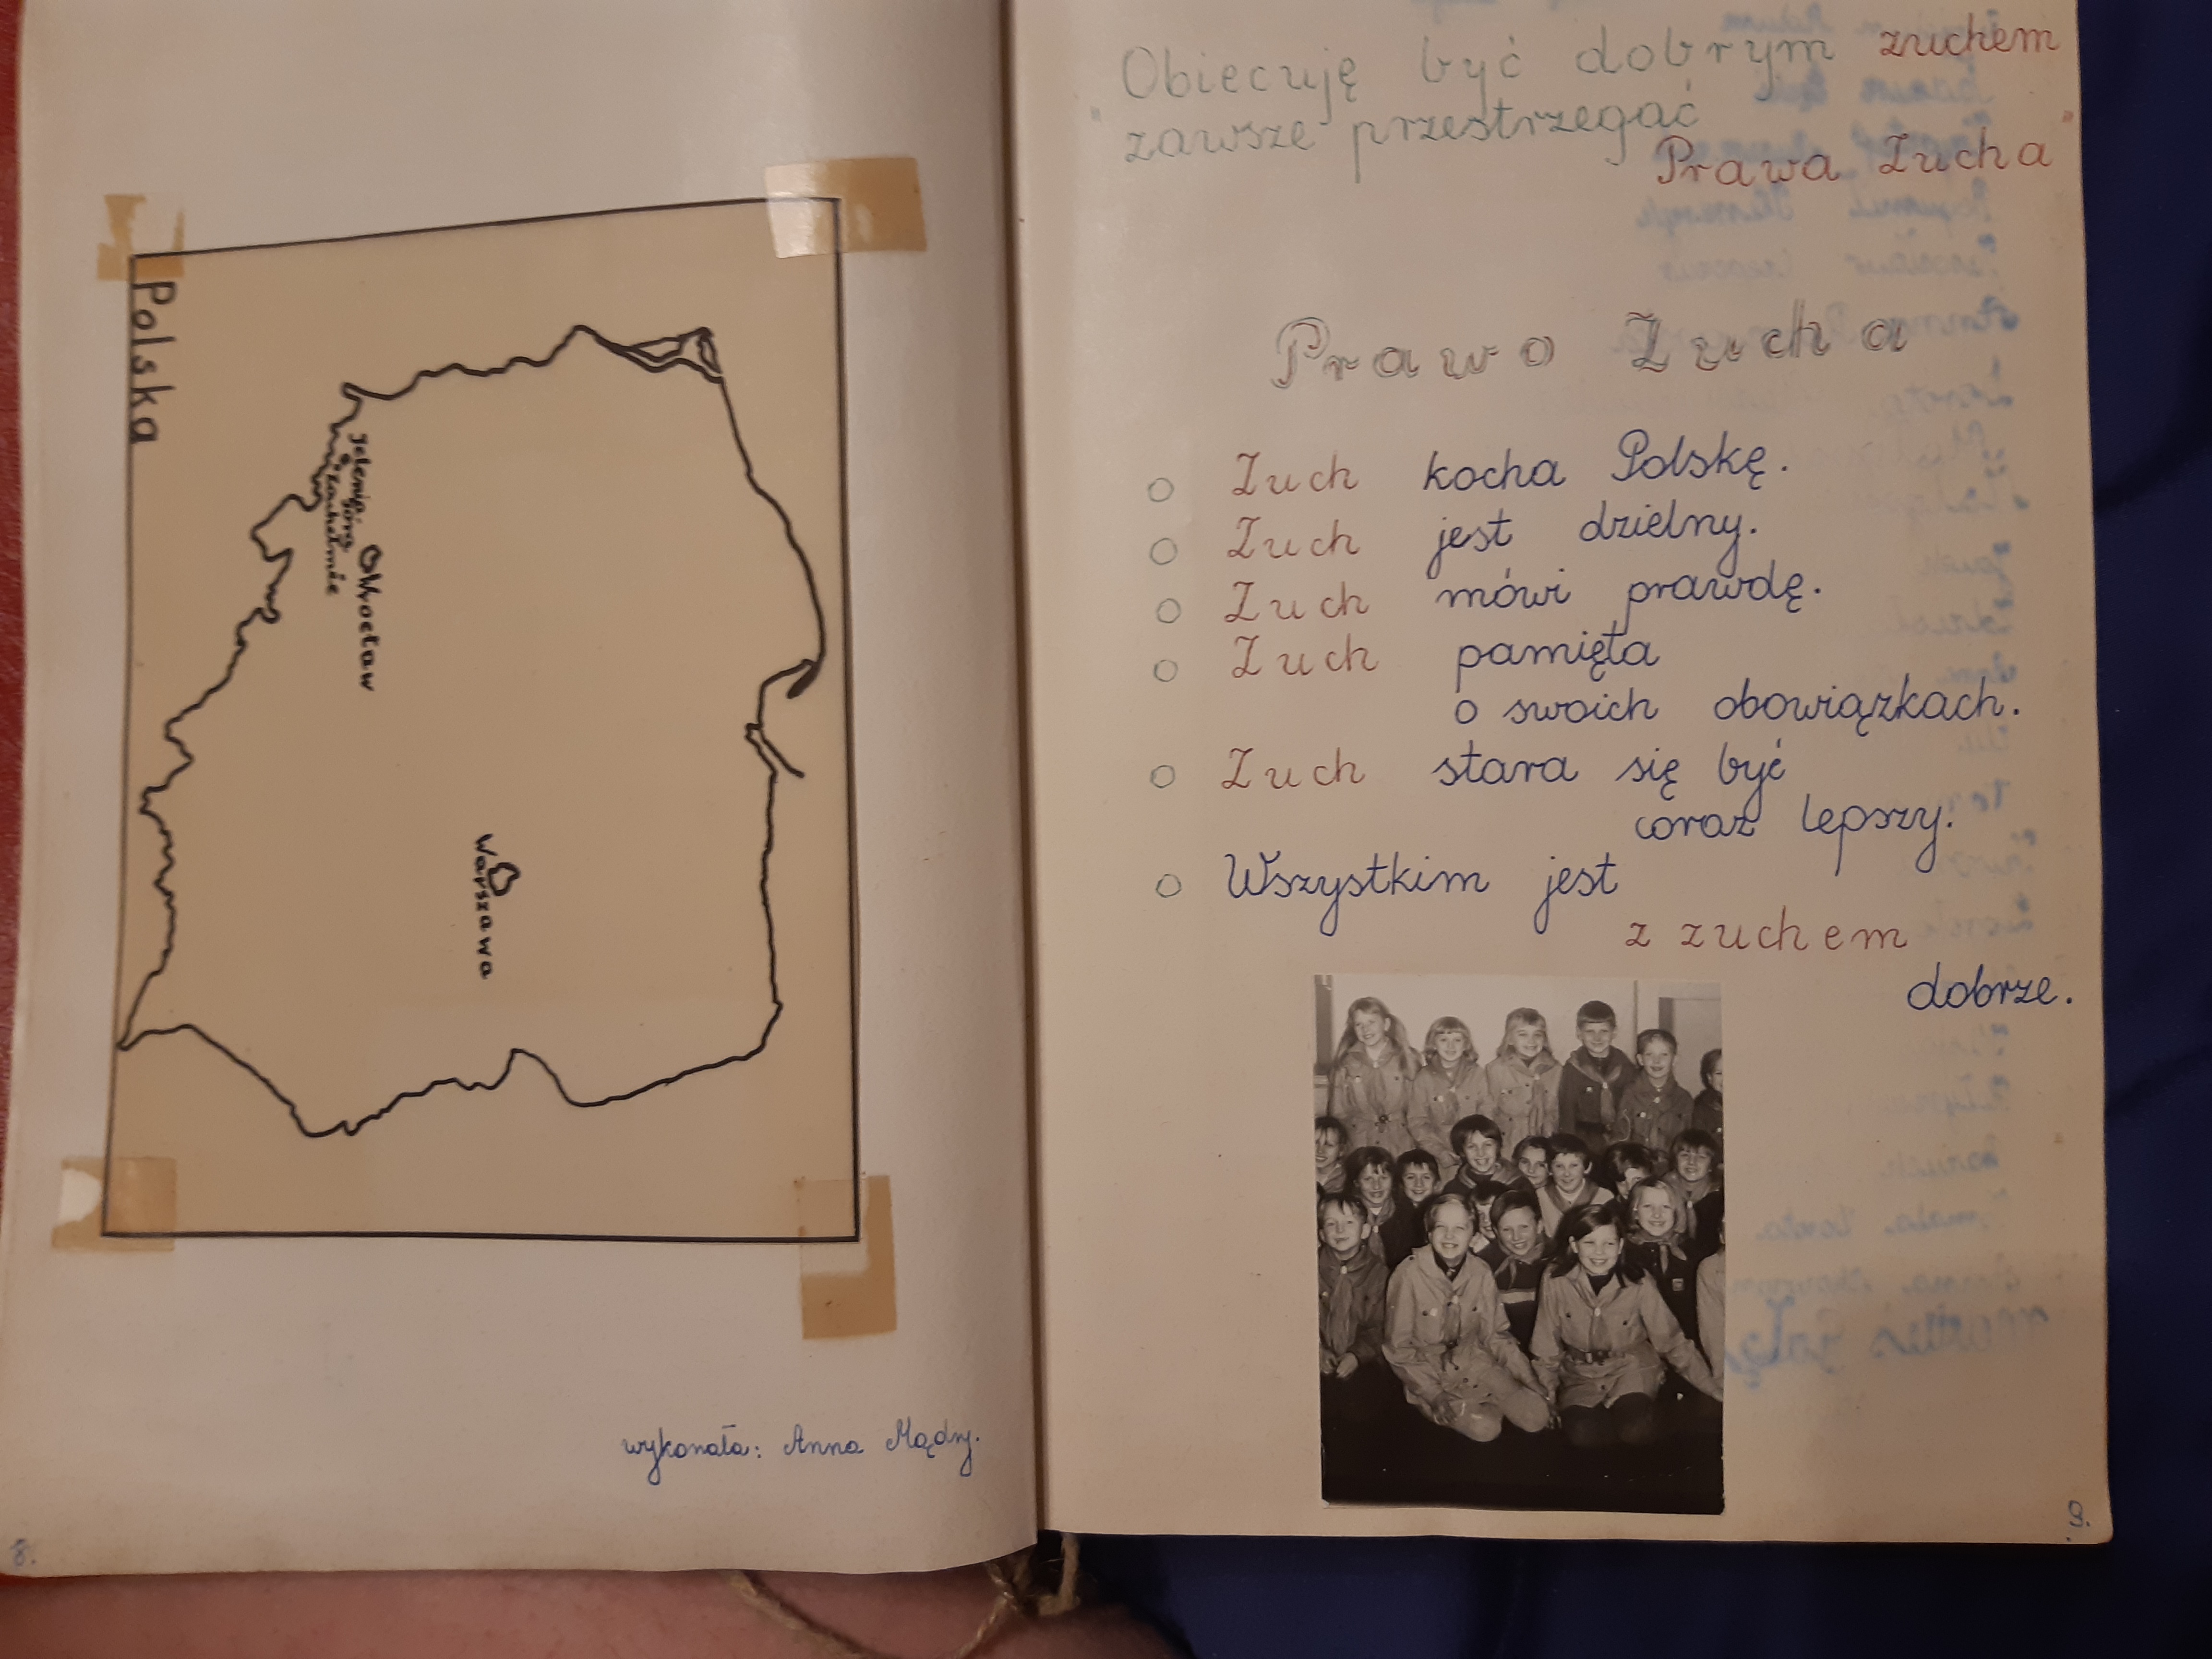 Polska
Jelenia Góra
Zachełmie
Wrocław
Warszawa
wykonała: Anna Mądry.
8.
Obiecuję być dobrym zuchem
"zawsze przestrzegać
Prawa Zucha"
Prawo Zucha
Zuch kocha Polskę.
Zuch jest dzielny.
Zuch mówi prawdę.
Zuch pamięta
o swoich obowiązkach.
Zuch stara się być
coraz lepszy.
Wszystkim jest
z zuchem
dobrze.
9.